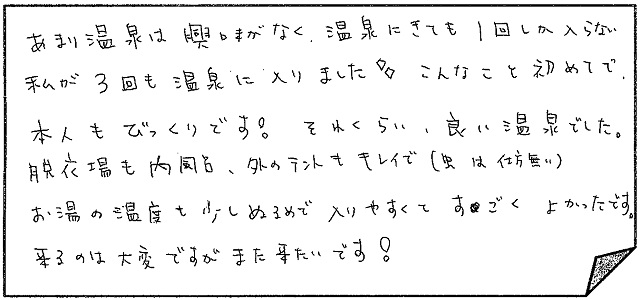 あまり温泉は興味がなく、温泉にきても1回しか入らない
私が3回も温泉に入りました!! こんなこと初めてで、
本人もびっくりです! それくらい、良い温泉でした。
脱衣場も内風呂、外のテントもキレイで(虫は仕方無い)
お湯の温度も少しぬるめで入りやすくてすごくよかったです。
来るのは大変ですがまた来たいです!